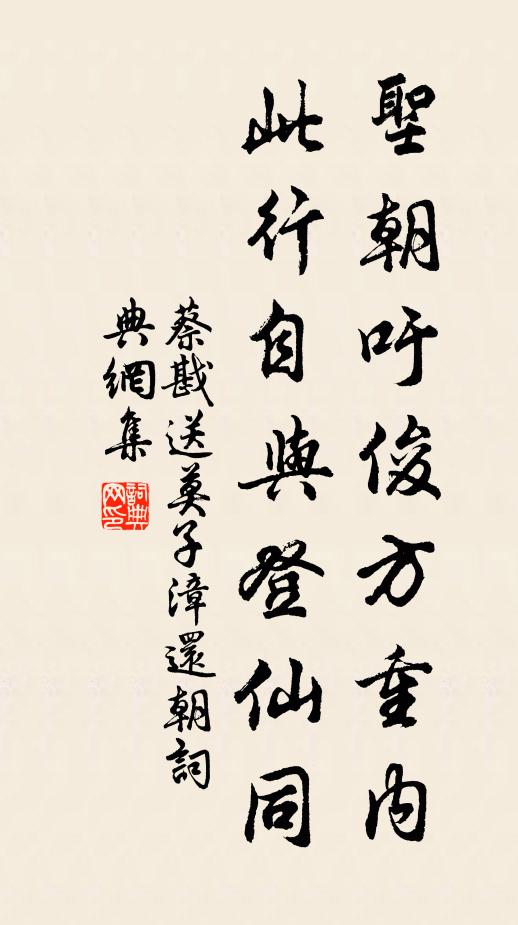 聖朝吁俊方重内
此行自與登仙同
蔡戡送莫子漳還朝詞
典網集
詞典
网印